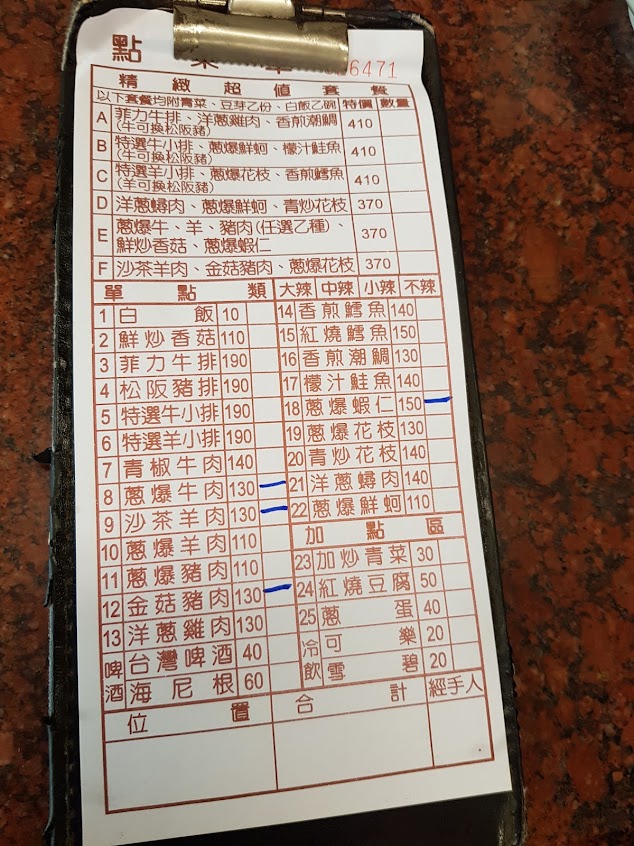 點菜單 6471
精緻超值套餐
以下套餐均附青菜、豆芽乙份、白飯乙碗 特價 數量
A 菲力牛排、洋蔥雞肉、香煎潮鯛 410
(牛可換松阪豬)
B 特選牛小排、蔥爆鮮蚵、檬汁鮭魚 410
(牛可換松阪豬)
C 特選羊小排、蔥爆花枝、香煎鱈魚 410
(羊可換松阪豬)
D 洋蔥蟳肉、蔥爆鮮蚵、青炒花枝 370
E 蔥爆牛、羊、豬肉(任選乙種)、 370
鮮炒香菇、蔥爆蝦仁
F 沙茶羊肉、金菇豬肉、蔥爆花枝 370
單點類
1 白飯 10
2 鮮炒香菇 110
3 菲力牛排 190
4 松阪豬排 190
5 特選牛小排 190
6 特選羊小排 190
7 青椒牛肉 140
8 蔥爆牛肉 130
9 沙茶羊肉 130
10 蔥爆羊肉 110
11 蔥爆豬肉 110
12 金菇豬肉 130
13 洋蔥雞肉 130
啤酒 台灣啤酒 40
海尼根 60
大辣 中辣 小辣 不辣
14 香煎鱈魚 140
15 紅燒鱈魚 150
16 香煎潮鯛 130
17 檬汁鮭魚 140
18 蔥爆蝦仁 150
19 蔥爆花枝 130
20 青炒花枝 140
21 洋蔥蟳肉 140
22 蔥爆鮮蚵 110
加點區
23 加炒青菜 30
24 紅燒豆腐 50
25 蔥蛋 40
冷飲 可樂 20
雪碧 20
位置 合計 經手人